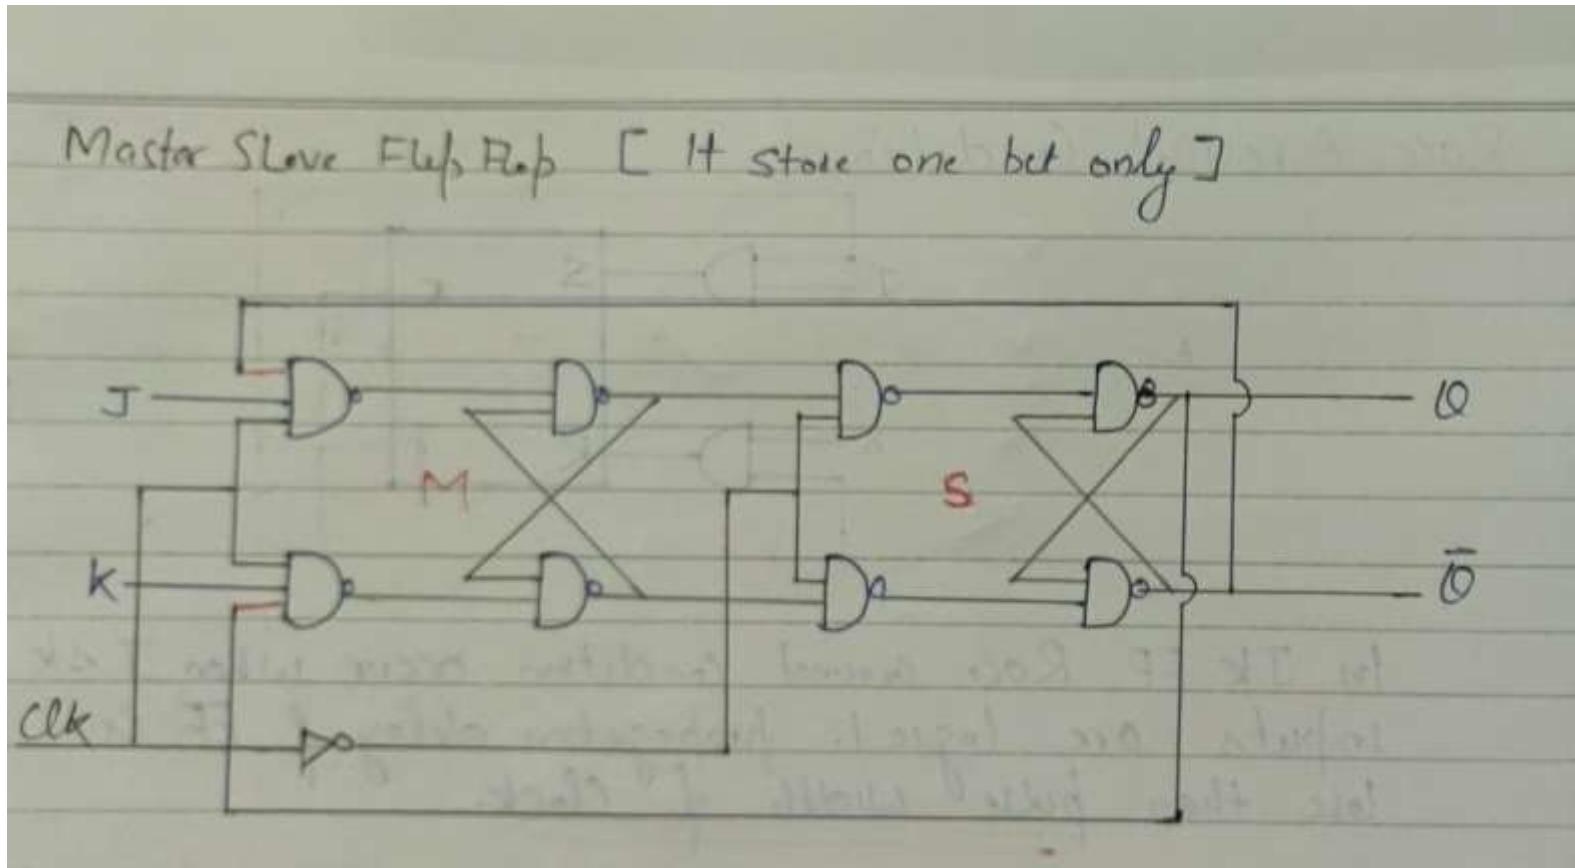 Master Slave Flip Flop [ It store one bit only ]
J
Q
M
S
K
Q̅
Clk